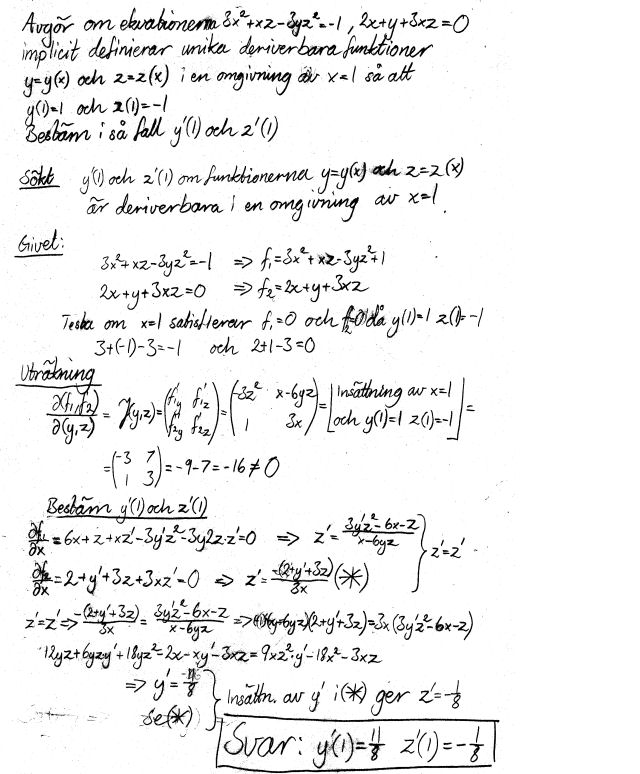 Avgör om ekvationerna 3x²+xz-3yz²=-1, 2x+y+3xz=0
implicit definierar unika deriverbara funktioner
y=y(x) och z=z(x) i en omgivning av x=1 så att
y(1)=1 och z(1)=-1
Bestäm i så fall y'(1) och z'(1)
Sökt y'(1) och z'(1) om funktionerna y=y(x) och z=z(x)
är deriverbara i en omgivning av x=1.
Givet:
3x²+xz-3yz²=-1 ⇒ f₁=3x²+xz-3yz²+1
2x+y+3xz=0 ⇒ f₂=2x+y+3xz
Testa om x=1 satisfierar f₁=0 och f₂=0 då y(1)=1 z(1)=-1
3+(-1)-3=-1 och 2+1-3=0
Uträkning
∂(f₁,f₂)/∂(y,z) = J(y,z) = (f₁'y f₁'z; f₂'y f₂'z) = (-3z² x-6yz; 1 3x) = [Insättning av x=1 och y(1)=1 z(1)=-1] =
= (-3 7; 1 3) = -9-7 = -16 ≠ 0
Bestäm y'(1) och z'(1)
∂f₁/∂x = 6x+z+xz'-3y'z²-3y2z·z'=0 ⇒ z' = (3y'z²-6x-z)/(x-6yz)
∂f₂/∂x = 2+y'+3z+3xz'=0 ⇒ z' = -(2+y'+3z)/3x (*) } z'=z'
z'=z' ⇒ -(2+y'+3z)/3x = (3y'z²-6x-z)/(x-6yz) ⇒ (2+y'+3z)=3x(3y'z²-6x-z)
12yz+6yzy'+18yz²-2x-xy'-3xz=9xz²·y'-18x²-3xz
⇒ y' = 11/8
se(*) } Insättn. av y' i (*) ger z'=-1/8
Svar: y'(1)=11/8 z'(1)=-1/8